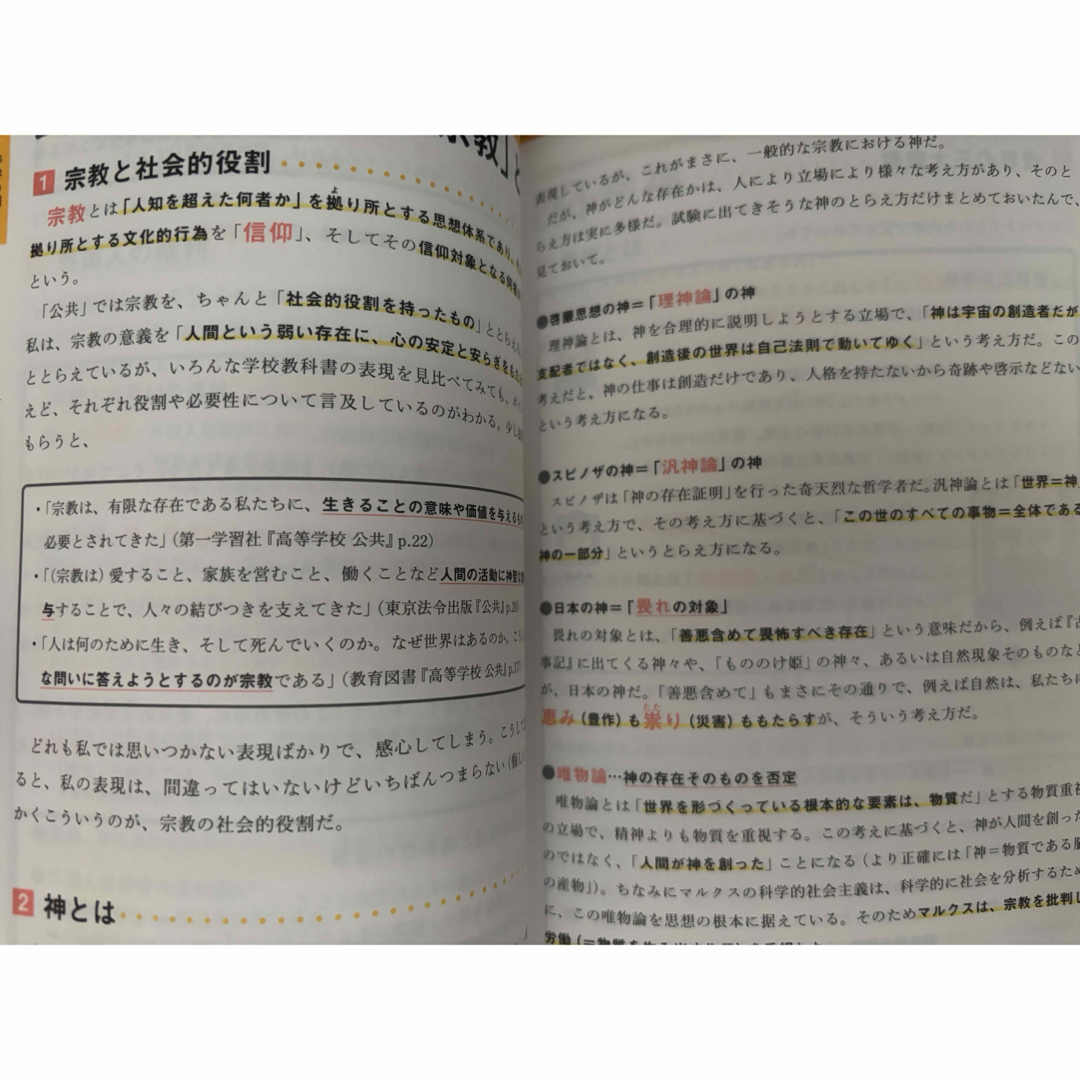 教」と
1 宗教と社会的役割
宗教とは「人知を超えた何者か」を拠り所とする思想体系であり、
拠り所とする文化的行為を「信仰」、そしてその信仰対象となる
という。
「公共」では宗教を、ちゃんと「社会的役割を持ったもの」ととらえ
私は、宗教の意義を「人間という弱い存在に、心の安定と安らぎをもた
ととらえているが、いろんな学校教科書の表現を見比べてみても、
えど、それぞれ役割や必要性について言及しているのがわかる。少し
もらうと、
・「宗教は、有限な存在である私たちに、生きることの意味や価値を与えるもの
必要とされてきた」(第一学習社『高等学校 公共』p.22)
・「(宗教は)愛すること、家族を営むこと、働くことなど人間の活動に神聖な
与することで、人々の結びつきを支えてきた」(東京法令出版『公共』p.20)
・「人は何のために生き、そして死んでいくのか。なぜ世界はあるのか。こう
な問いに答えようとするのが宗教である」(教育図書『高等学校 公共』p.17)
どれも私では思いつかない表現ばかりで、感心してしまう。こうし
ると、私の表現は、間違ってはいないけどいちばんつまらない
かくこういうのが、宗教の社会的役割だ。
2 神とは
表現しているが、これがまさに、一般的な宗教における神だ。
だが、神がどんな存在かは、人により立場により様々な考え方があり、そのと
らえ方は実に多様だ。試験に出てきそうな神のとらえ方だけまとめておいたんで、
見ておいて。
●啓蒙思想の神=「理神論」の神
理神論とは、神を合理的に説明しようとする立場で、「神は宇宙の創造者だが
支配者ではなく、創造後の世界は自己法則で動いてゆく」という考え方だ。この
考えだと、神の仕事は創造だけであり、人格を持たないから奇跡や啓示などない
という考え方になる。
●スピノザの神=「汎神論」の神
スピノザは「神の存在証明」を行った奇天烈な哲学者だ。汎神論とは「世界=神」
という考え方で、その考え方に基づくと、「この世のすべての事物=全体である
神の一部分」というとらえ方になる。
●日本の神=「畏れの対象」
畏れの対象とは、「善悪含めて畏怖すべき存在」という意味だから、例えば『古
事記』に出てくる神々や、「もののけ姫」の神々、あるいは自然現象そのものなど
が、日本の神だ。「善悪含めて」もまさにその通りで、例えば自然は、私たちに
恵み(豊作)も祟り(災害)ももたらすが、そういう考え方だ。
●唯物論…神の存在そのものを否定
唯物論とは「世界を形づくっている根本的な要素は、物質だ」とする物質重視
の立場で、精神よりも物質を重視する。この考えに基づくと、神が人間を創った
のではなく、「人間が神を創った」ことになる(より正確には「神=物質である脳
の産物」)。ちなみにマルクスの科学的社会主義は、科学的に社会を分析するため
に、この唯物論を思想の根本に据えている。そのためマルクスは、宗教を批判し
労働(=物質を